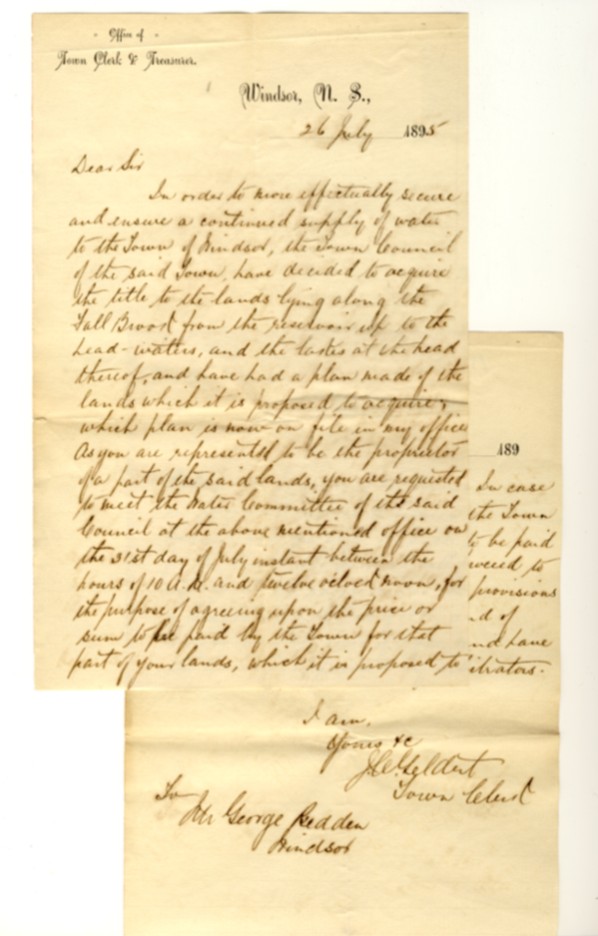 - Office of -
Town Clerk & Treasurer.
Windsor, N. S.,
26 July 1895
Dear Sir
In order to more effectually secure
and ensure a continued supply of water
to the Town of Windsor, the Town Council
of the said Town, have decided to acquire
the title to the lands lying along the
Fall Brook from the reservoir up to the
head-waters, and the lakes at the head
thereof, and have had a plan made of the
lands which it is proposed to acquire,
which plan is now on file in my office
As you are represented to be the proprietor
of a part of the said lands, you are requested
to meet the Water Committee of the said
Council at the above mentioned office on
the 31st day of July instant between the
hours of 10 A.M. and twelve oclock noon, for
the purpose of agreeing upon the price or
sum to be paid by the Town for that
part of your lands, which it is proposed to
189
In case
the Town
to be paid
proceed to
provisions
nd of
nd have
itrators.
I am,
Yours &c
Geldert
Town Clerk
To
Mr George Redden
Windsor